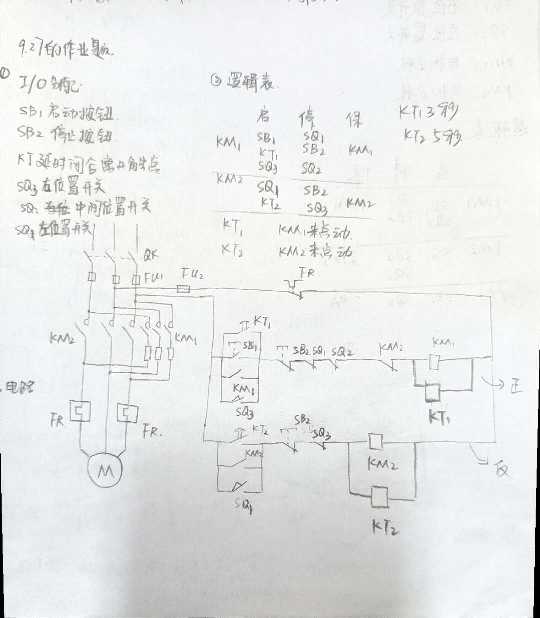 9.27的作业题
① I/O分配
SB1 启动按钮
SB2 停止按钮
KT 延时闭合常开触点
SQ3 右位置开关
SQ1 中间位置开关
SQ1 左位置开关
② 逻辑表
启 停 保
KM1 SB1 SQ1
KT1 SB2 KM1
SQ3 SQ2
KM2 SQ1 SB2
KT2 SQ3 KM2
KT1 KM1来点动
KT2 KM2来点动
KT1 3秒
KT2 5秒
QK
FU1
FU2
FR
KM2
KM1
主电路
FR
FR.
M
KT1
SB1
KM1
SQ3
SB2 SQ1 SQ2
KM2
KM1
KT1
正
KT2
KM2
SQ1
SB2
SQ3
KM2
KT2
反